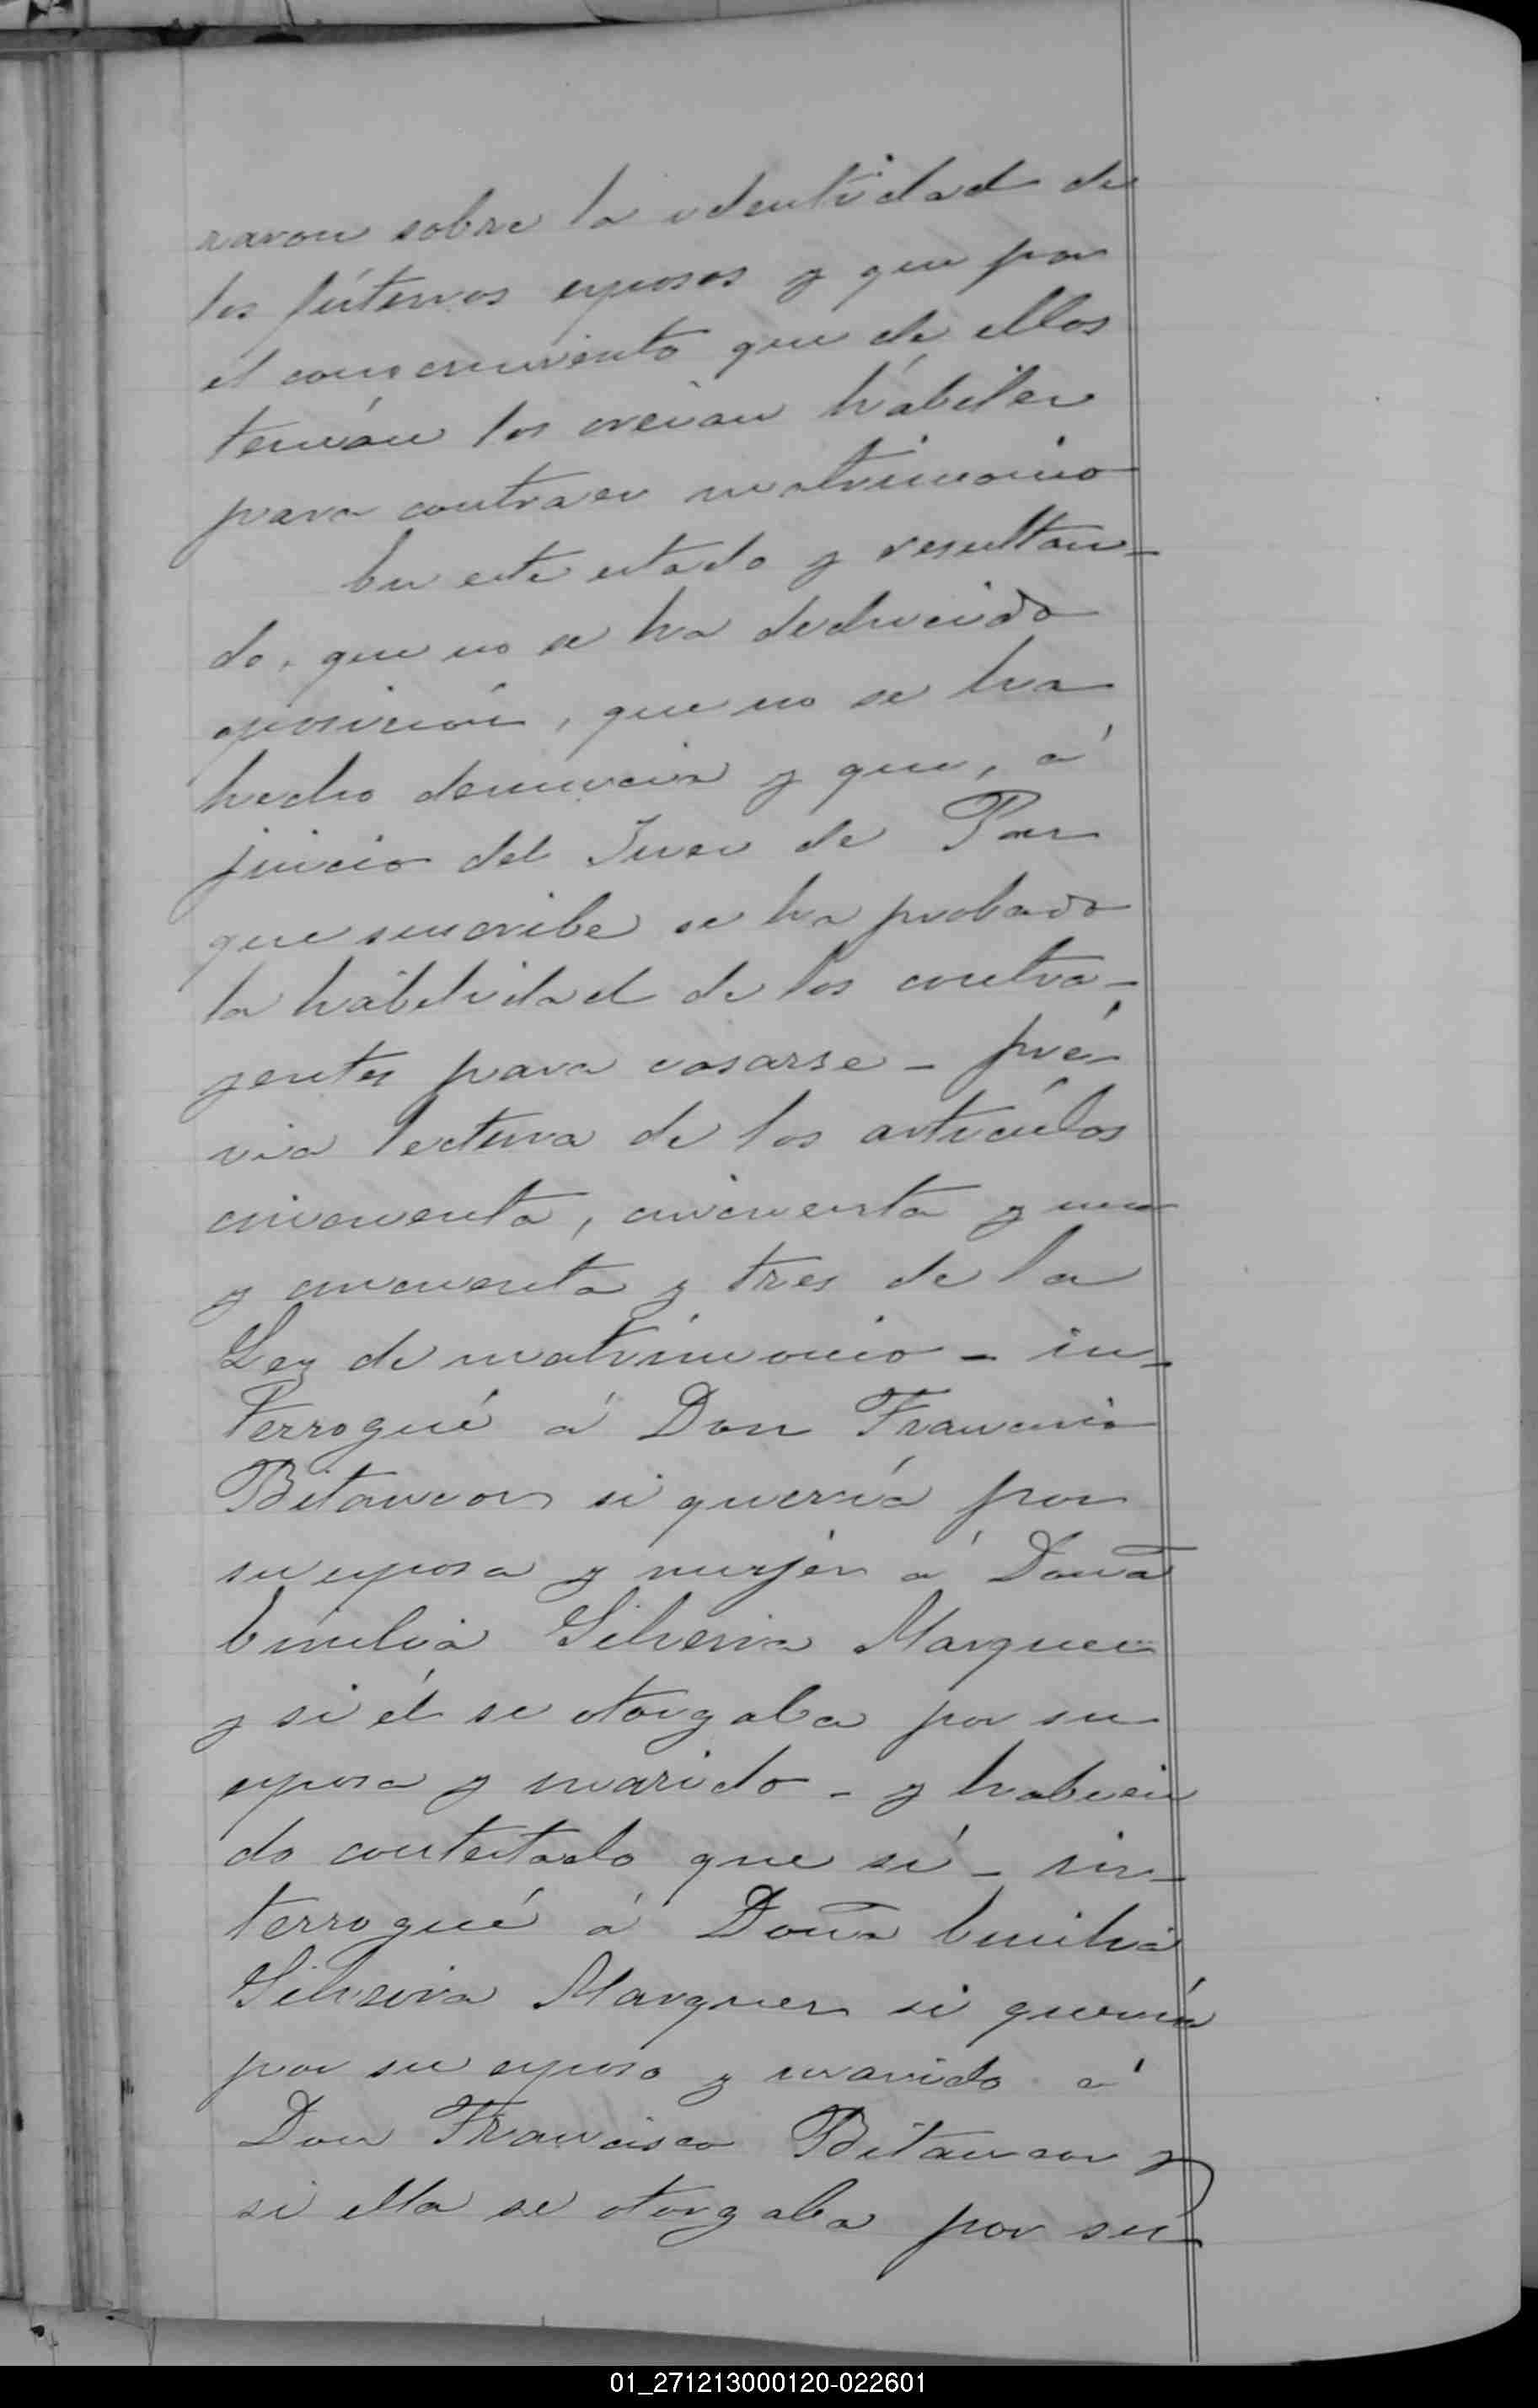 raron sobre la identidad de
los fúturos esposos y que por
el conocimiento que de ellos
tenían los creían hábiles
para contraer matrimonio
En este estado y resultan-
do, que no se ha deducido
oposición, que no se ha
hecho denuncia y que, á
juicio del Juez de Paz
que suscribe se ha probado
la habilidad de los contra-
yentes para casarse - pré-
via lectura de los artículos
cincuenta, cincuenta y uno
y cincuenta y tres de la
Ley de matrimonio - in-
terrogué á Don Francisco
Bitancor si quería por
su esposa y mujer á Doña
Emilia Silveria Marquez
y si él se otorgaba por su
esposo y marido - y habien
do contestado que sí - in-
terrogué á Doña Emilia
Silveira Marquez si quería
por su esposo y marido á
Don Francisco Bitancor y
si ella se otorgaba por su
01_271213000120-022601